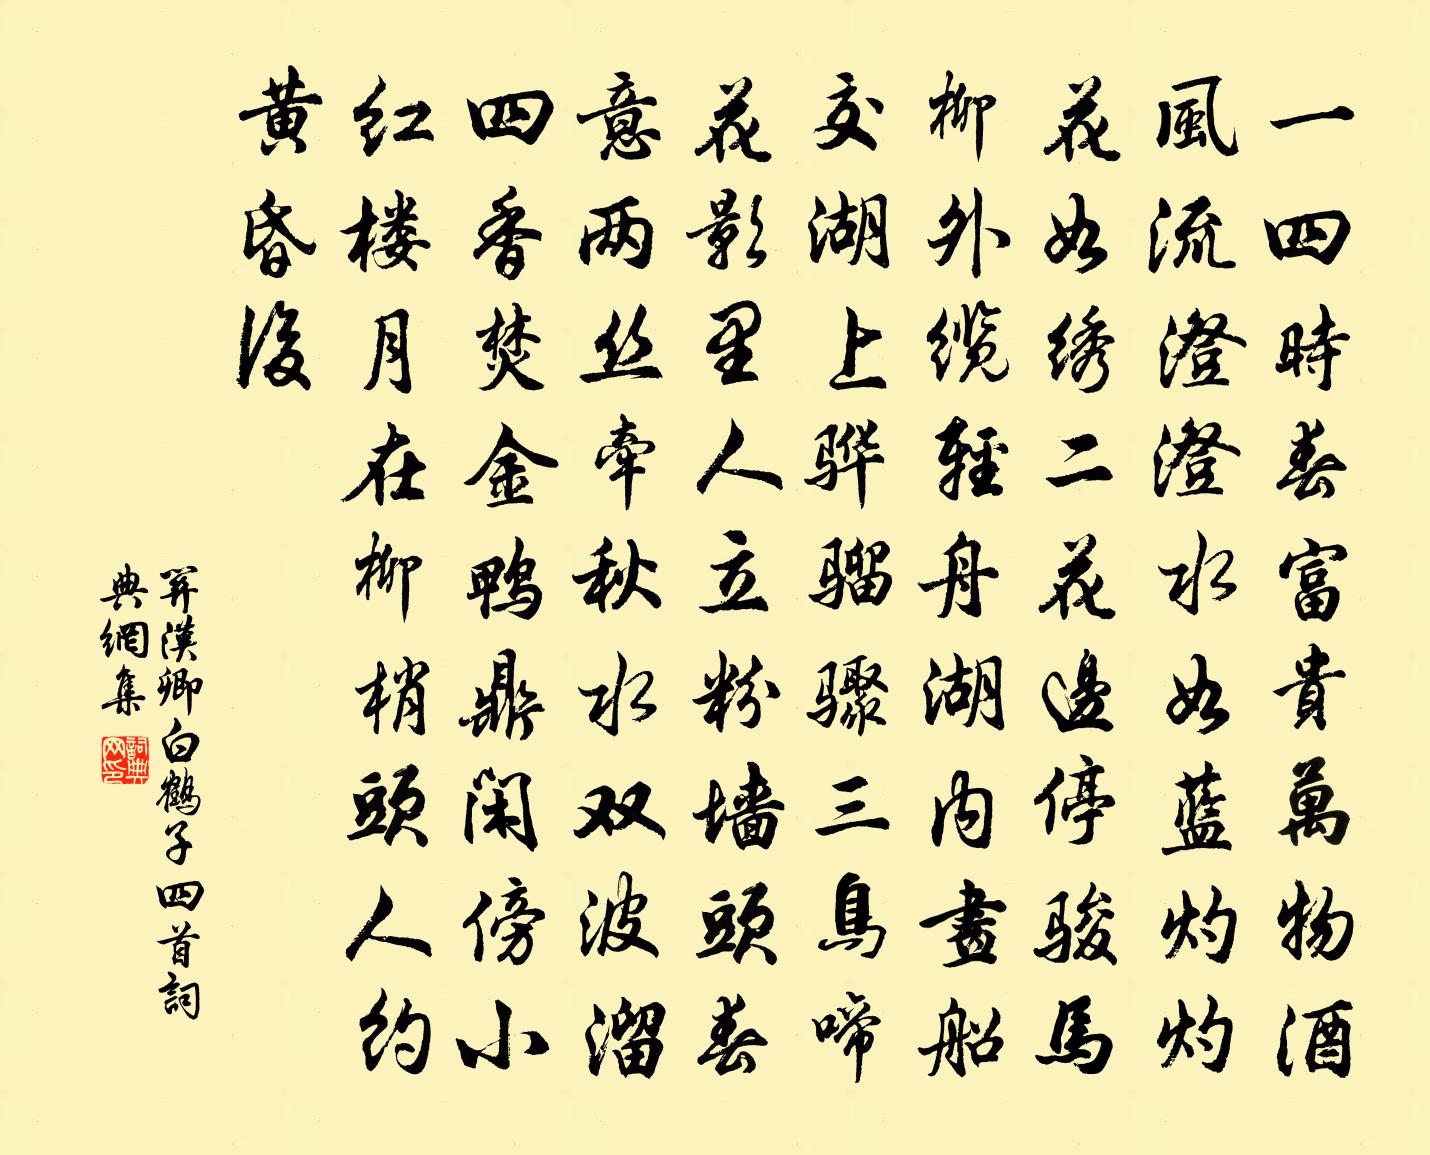 一四時春富貴萬物酒
風流澄澄水如藍灼灼
花如绣二花邊停骏馬
柳外缆輕舟湖内畫船
交湖上骅骝骤三鳥啼
花影里人立粉墙頭春
意两丝牽秋水双波溜
四香焚金鴨鼎閑傍小
红楼月在柳梢頭人约
黄昏後
關漢卿白鶴子四首詞
典網集
詞典网印